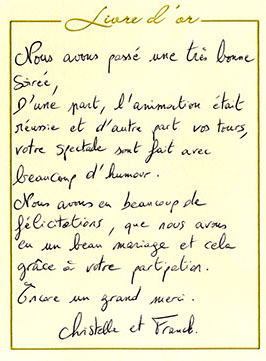 Livre d'or
Nous avons passé une très bonne
Soirée,
D'une part, l'animation était
réussie et d'autre part vos tours,
votre spectacle sont fait avec
beaucoup d'humour.
Nous avons eu beaucoup de
félicitations, que nous avons
eu un beau mariage et cela
grâce à votre partipation.
Encore un grand merci.
Christelle et Franck.